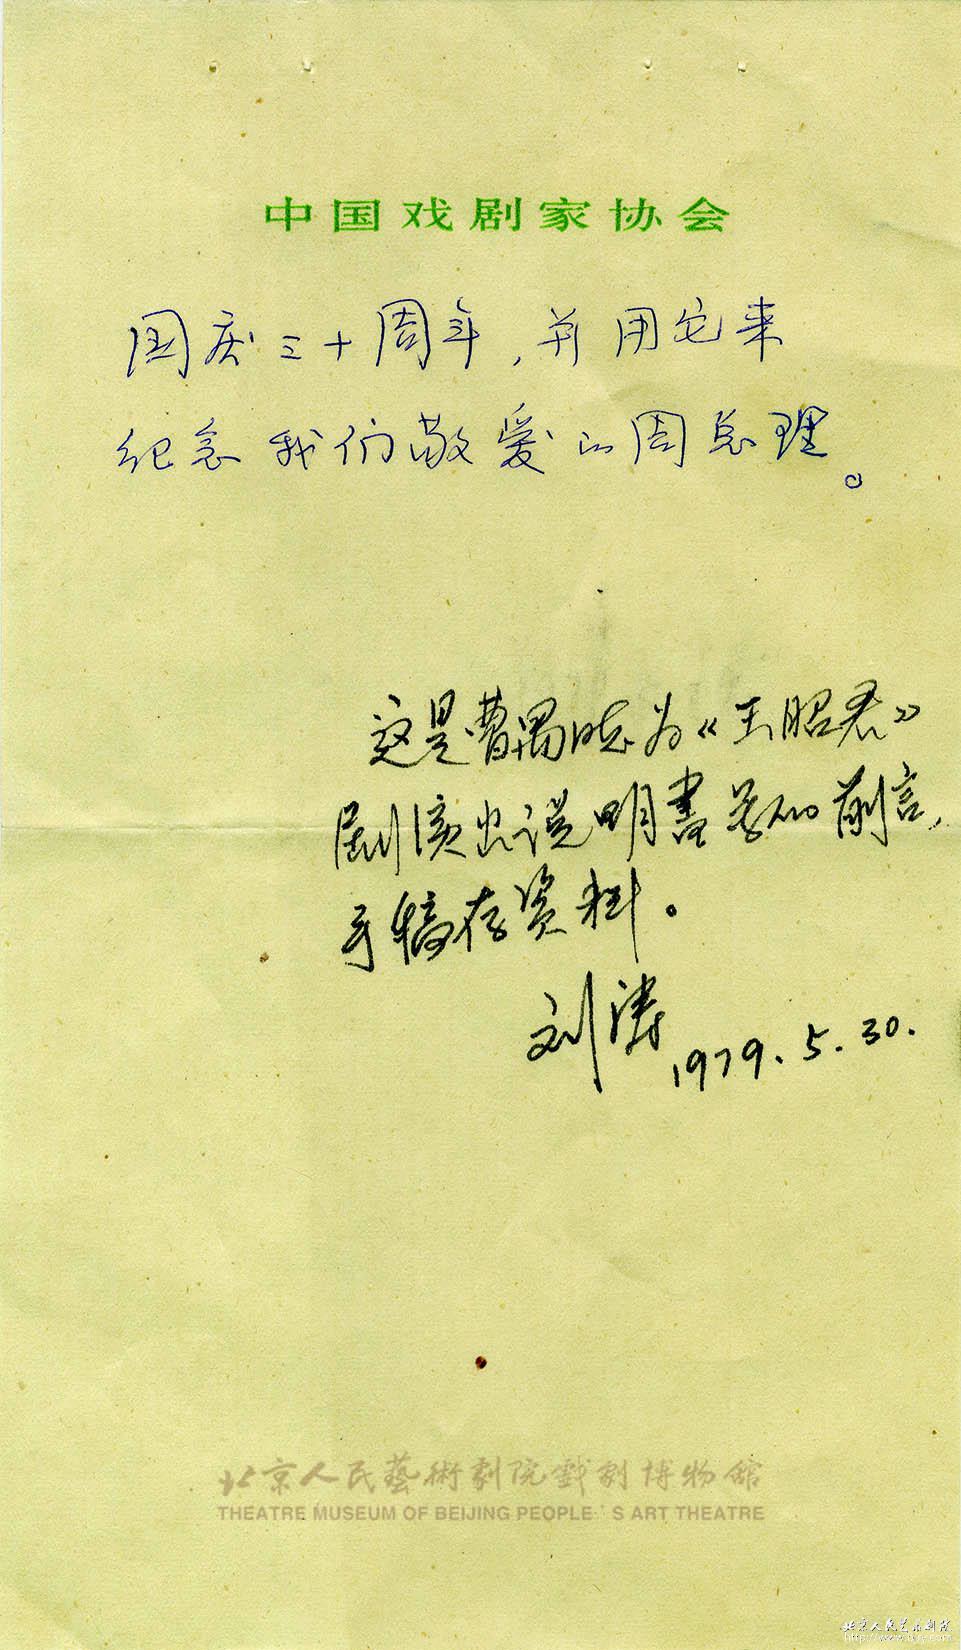 中国戏剧家协会
国庆三十周年，并用它来
纪念我们敬爱的周总理。
这是曹禺同志为《王昭君》
剧演出说明书写的前言，
手稿存资料。
刘涛
1979.5.30.
北京人民藝術劇院戲劇博物館
THEATRE MUSEUM OF BEIJING PEOPLE'S ART THEATRE
北京人民艺术剧院